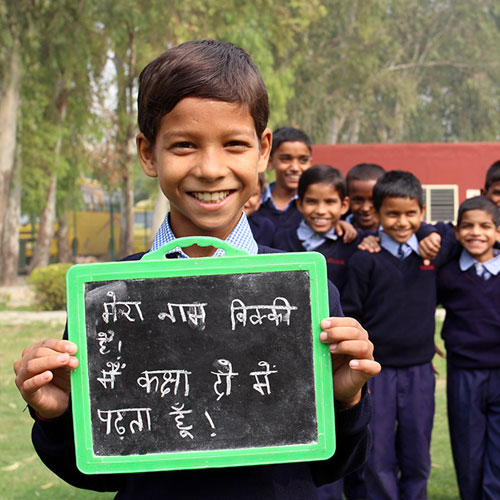 मेरा नाम विक्की
है।
मैं कक्षा दो में
पढ़ता हूँ !